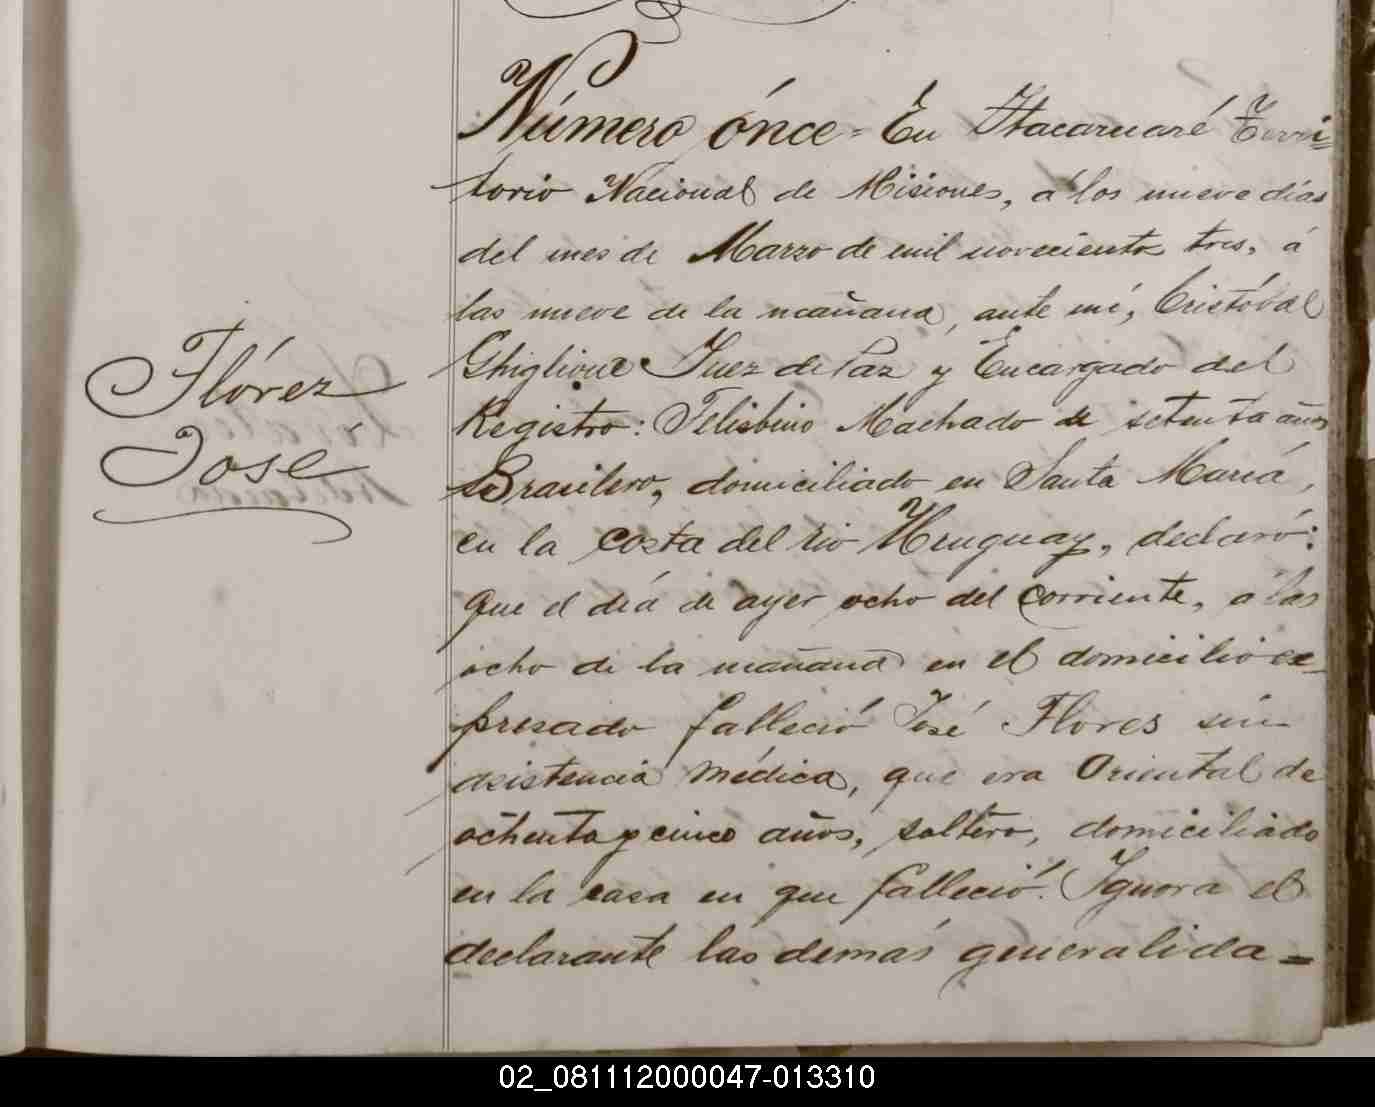 Número ónce = En Itacaruaré Terri=
torio Nacional de Misiones, á los nueve días
del mes de Marzo de mil novecientos tres, á
las nueve de la mañana, ante mí, Cristóbal
Ghiglione Juez de Paz y Encargado del
Registro: Felisbino Machado de setenta años
Brasilero, domiciliado en Santa María,
en la costa del rio Uruguay, declaró:
que el día de ayer ocho del corriente, á las
ocho de la mañana en el domicilio ex-
presado falleció José Flores sin
asistencia médica, que era Oriental de
ochenta y cinco años, soltero, domiciliado
en la casa en que falleció. Ignora el
declarante las demás generalida=
Flórez
José
02_081112000047-013310